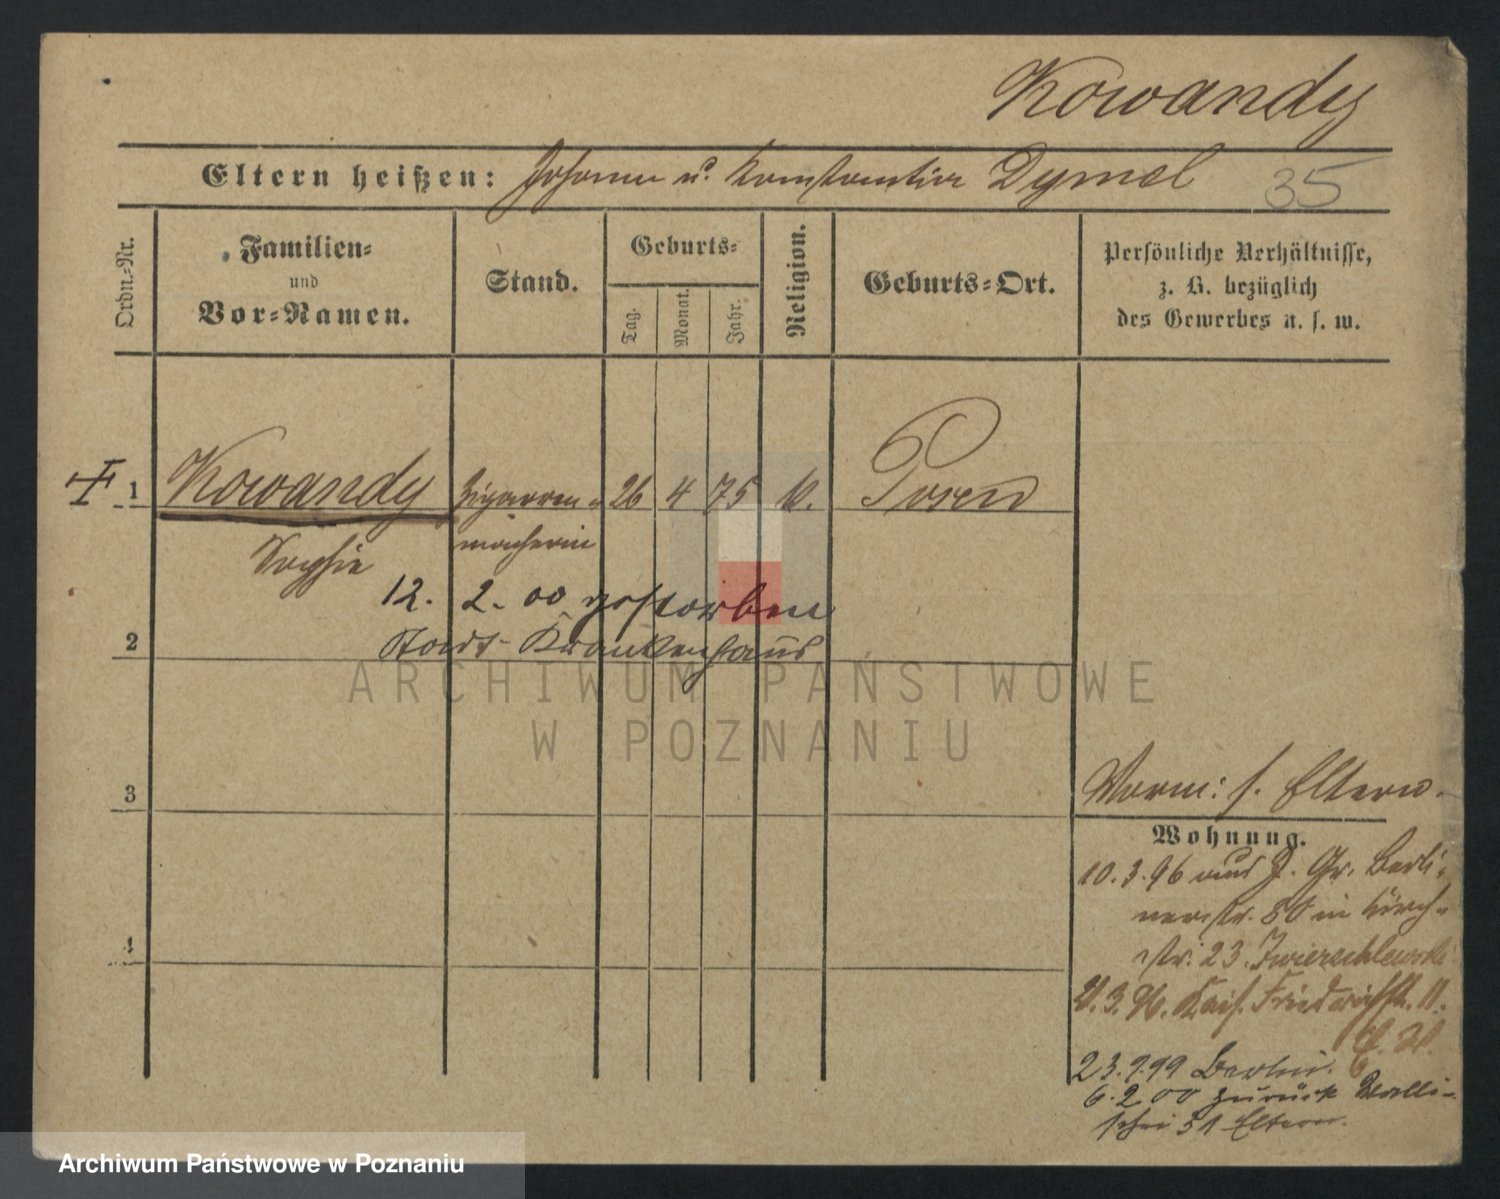 Kowandy
Eltern heißen: Johann u. Konstantia Dymel 35
Ordn.-Nr.
Familien-
und
Vor-Namen.
Stand.
Geburts-
Tag.
Monat.
Jahr.
Religion.
Geburts-Ort.
Persönliche Verhältnisse,
z. B. bezüglich
des Gewerbes u. s. w.
1 Kowandy Zigarren- 26 4 75 k. Posen
Sophie macherin
12. 2. 00 gestorben
Stadt-Krankenhaus
2
3
4
Vorm: s. Eltern.
Wohnung.
10.3.96 aus J. Gr. Berli-
nerstr. 80 in
str. 23.
.3.96. Kais. Friedrichstr. 11.
23.9.99 Berlin.
6.2.00 zurück Walli-
schei 51 Eltern.
ARCHIWUM PAŃSTWOWE
W POZNANIU
Archiwum Państwowe w Poznaniu